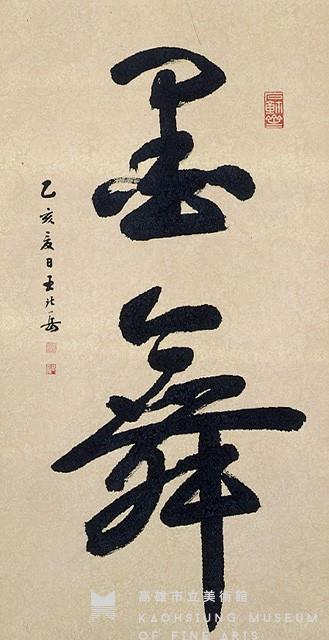 墨舞
乙亥夏日王北岳
高雄市立美術館
KAOHSIUNG MUSEUM
OF FINE ARTS